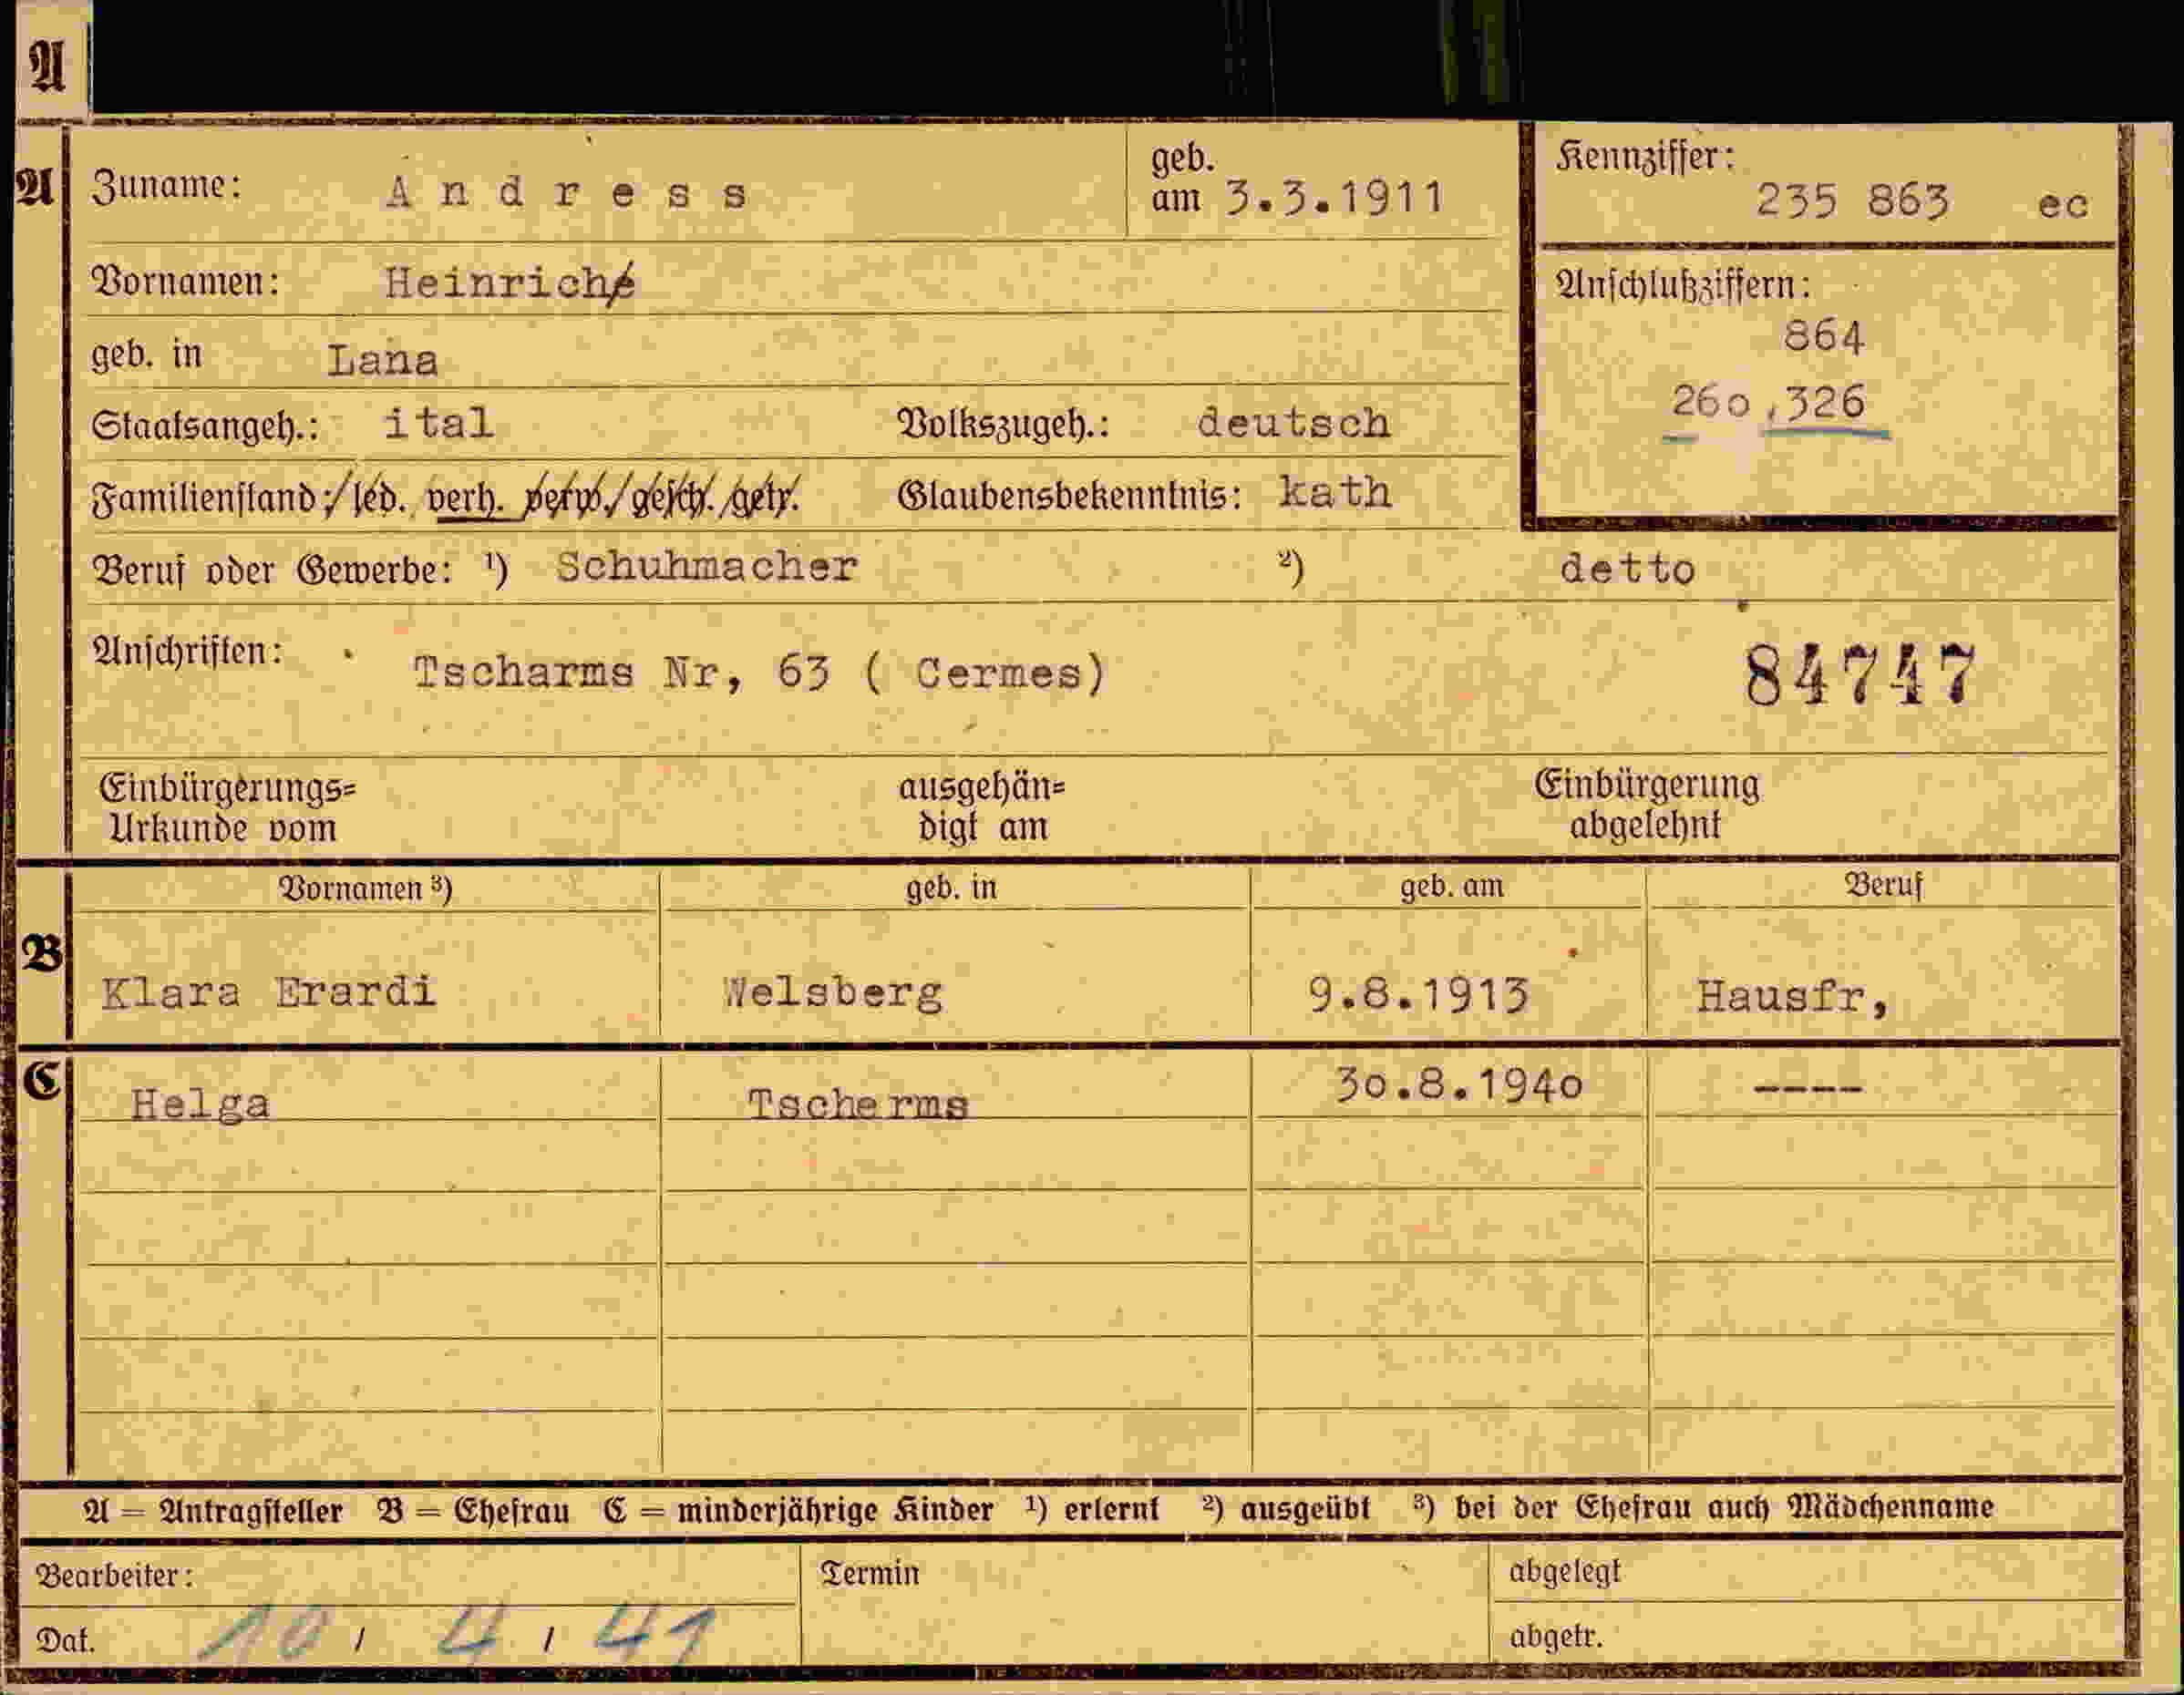 A
A Zuname: Andress geb. am 3.3.1911 Kennziffer: 235 863 ec
Vornamen: Heinrich Anschlußziffern:
864
geb. in Lana
260,326
Staatsangeh.: ital Volkszugeh.: deutsch
Familienstand: led. verh. verw. gesch. getr. Glaubensbekenntnis: kath
Beruf oder Gewerbe: ¹) Schuhmacher ²) detto
Anschriften: Tscharms Nr, 63 ( Cermes) 84747
Einbürgerungs= ausgehän= Einbürgerung
Urkunde vom digt am abgelehnt
Vornamen ³) geb. in geb. am Beruf
B Klara Erardi Welsberg 9.8.1913 Hausfr,
C Helga Tscherms 30.8.1940 ----
A = Antragsteller B = Ehefrau C = minderjährige Kinder ¹) erlernt ²) ausgeübt ³) bei der Ehefrau auch Mädchenname
Bearbeiter: Termin abgelegt
Dat. 10 / 4 / 41 abgetr.